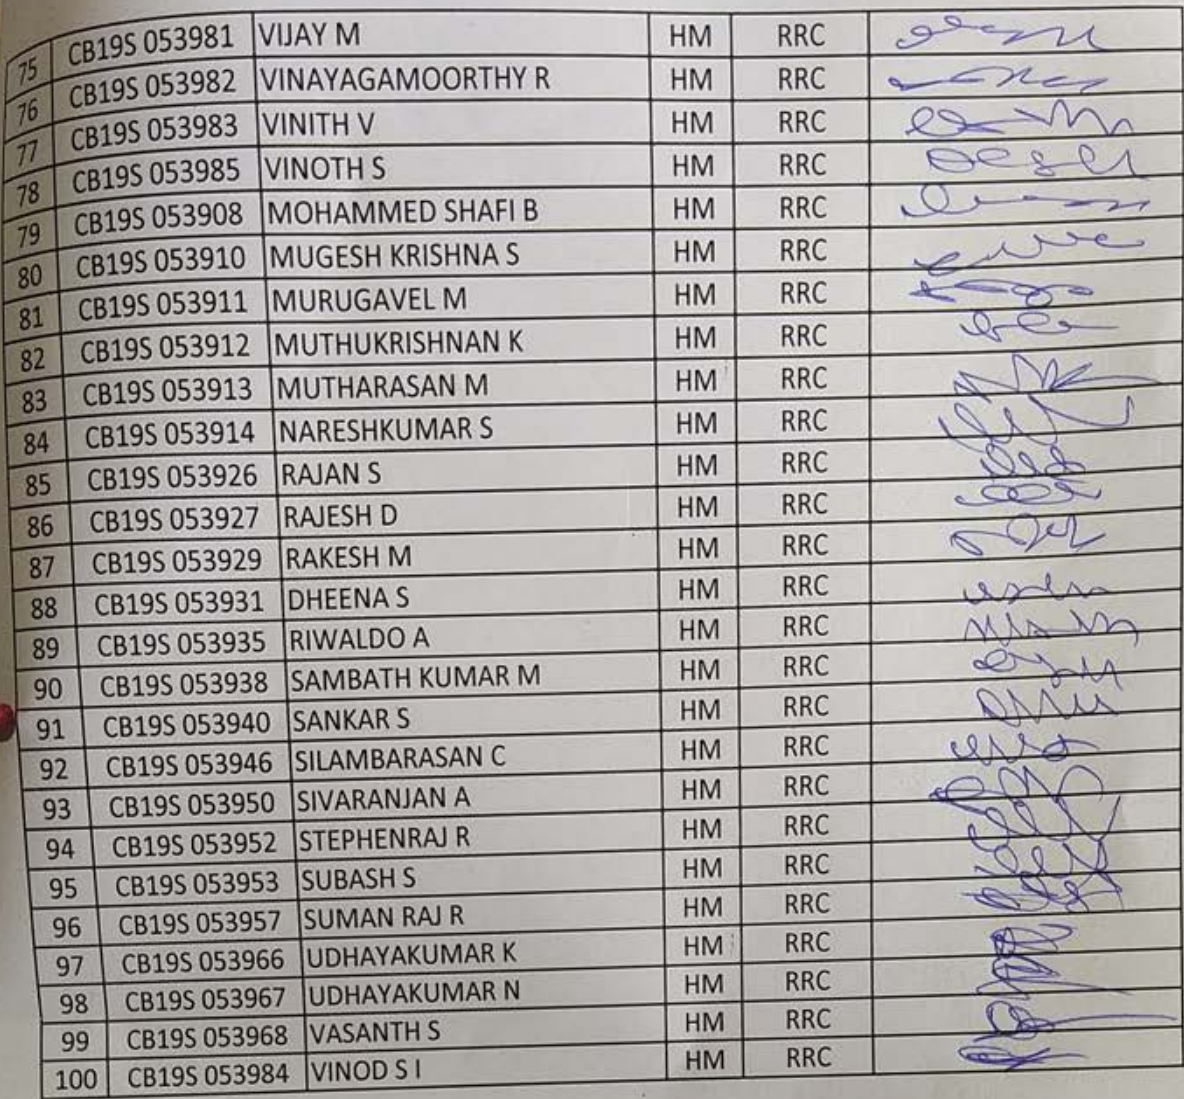 75 CB19S 053981 VIJAY M HM RRC
76 CB19S 053982 VINAYAGAMOORTHY R HM RRC
77 CB19S 053983 VINITH V HM RRC
78 CB19S 053985 VINOTH S HM RRC
79 CB19S 053908 MOHAMMED SHAFI B HM RRC
80 CB19S 053910 MUGESH KRISHNA S HM RRC
81 CB19S 053911 MURUGAVEL M HM RRC
82 CB19S 053912 MUTHUKRISHNAN K HM RRC
83 CB19S 053913 MUTHARASAN M HM RRC
84 CB19S 053914 NARESHKUMAR S HM RRC
85 CB19S 053926 RAJAN S HM RRC
86 CB19S 053927 RAJESH D HM RRC
87 CB19S 053929 RAKESH M HM RRC
88 CB19S 053931 DHEENA S HM RRC
89 CB19S 053935 RIWALDO A HM RRC
90 CB19S 053938 SAMBATH KUMAR M HM RRC
91 CB19S 053940 SANKAR S HM RRC
92 CB19S 053946 SILAMBARASAN C HM RRC
93 CB19S 053950 SIVARANJAN A HM RRC
94 CB19S 053952 STEPHENRAJ R HM RRC
95 CB19S 053953 SUBASH S HM RRC
96 CB19S 053957 SUMAN RAJ R HM RRC
97 CB19S 053966 UDHAYAKUMAR K HM RRC
98 CB19S 053967 UDHAYAKUMAR N HM RRC
99 CB19S 053968 VASANTH S HM RRC
100 CB19S 053984 VINOD S I HM RRC